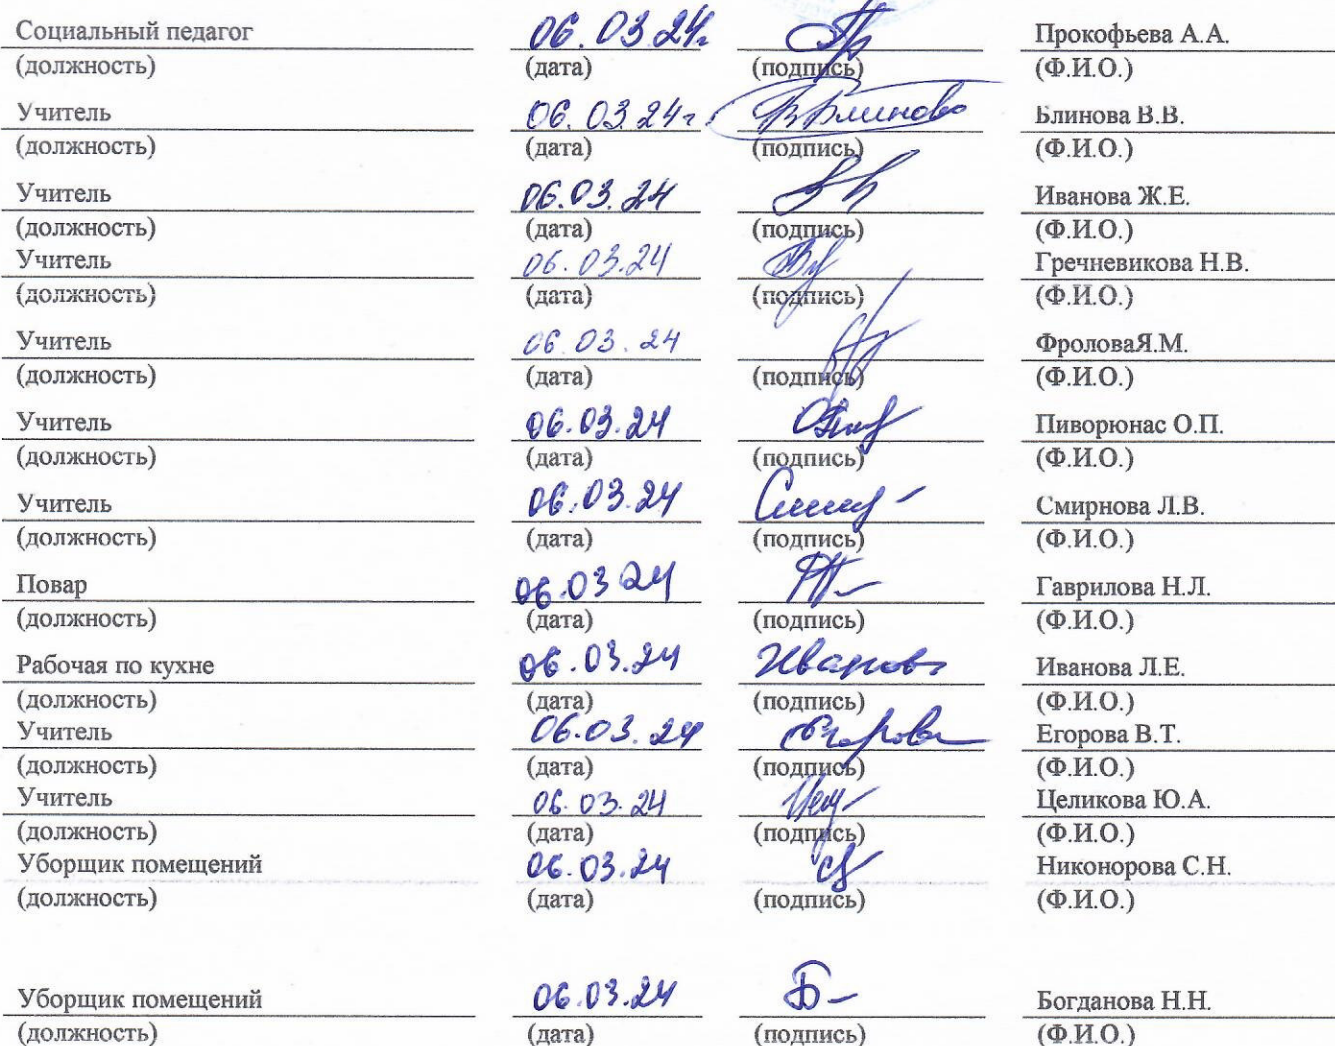 Социальный педагог 06.03.24г Прокофьева А.А.
(должность) (дата) (подпись) (Ф.И.О.)
Учитель 06.03.24г. В.Блинова Блинова В.В.
(должность) (дата) (подпись) (Ф.И.О.)
Учитель 06.03.24 Иванова Ж.Е.
(должность) (дата) (подпись) (Ф.И.О.)
Учитель 06.03.24 Гречневикова Н.В.
(должность) (дата) (подпись) (Ф.И.О.)
Учитель 06.03.24 ФроловаЯ.М.
(должность) (дата) (подпись) (Ф.И.О.)
Учитель 06.03.24 Пиворюнас О.П.
(должность) (дата) (подпись) (Ф.И.О.)
Учитель 06.03.24 Смирнова Л.В.
(должность) (дата) (подпись) (Ф.И.О.)
Повар 06.03 24 Гаврилова Н.Л.
(должность) (дата) (подпись) (Ф.И.О.)
Рабочая по кухне 06.03.24 Иванова Иванова Л.Е.
(должность) (дата) (подпись) (Ф.И.О.)
Учитель 06.03.24 Егорова Егорова В.Т.
(должность) (дата) (подпись) (Ф.И.О.)
Учитель 06.03.24 Целикова Ю.А.
(должность) (дата) (подпись) (Ф.И.О.)
Уборщик помещений 06.03.24 Никонорова С.Н.
(должность) (дата) (подпись) (Ф.И.О.)
Уборщик помещений 06.03.24 Б Богданова Н.Н.
(должность) (дата) (подпись) (Ф.И.О.)